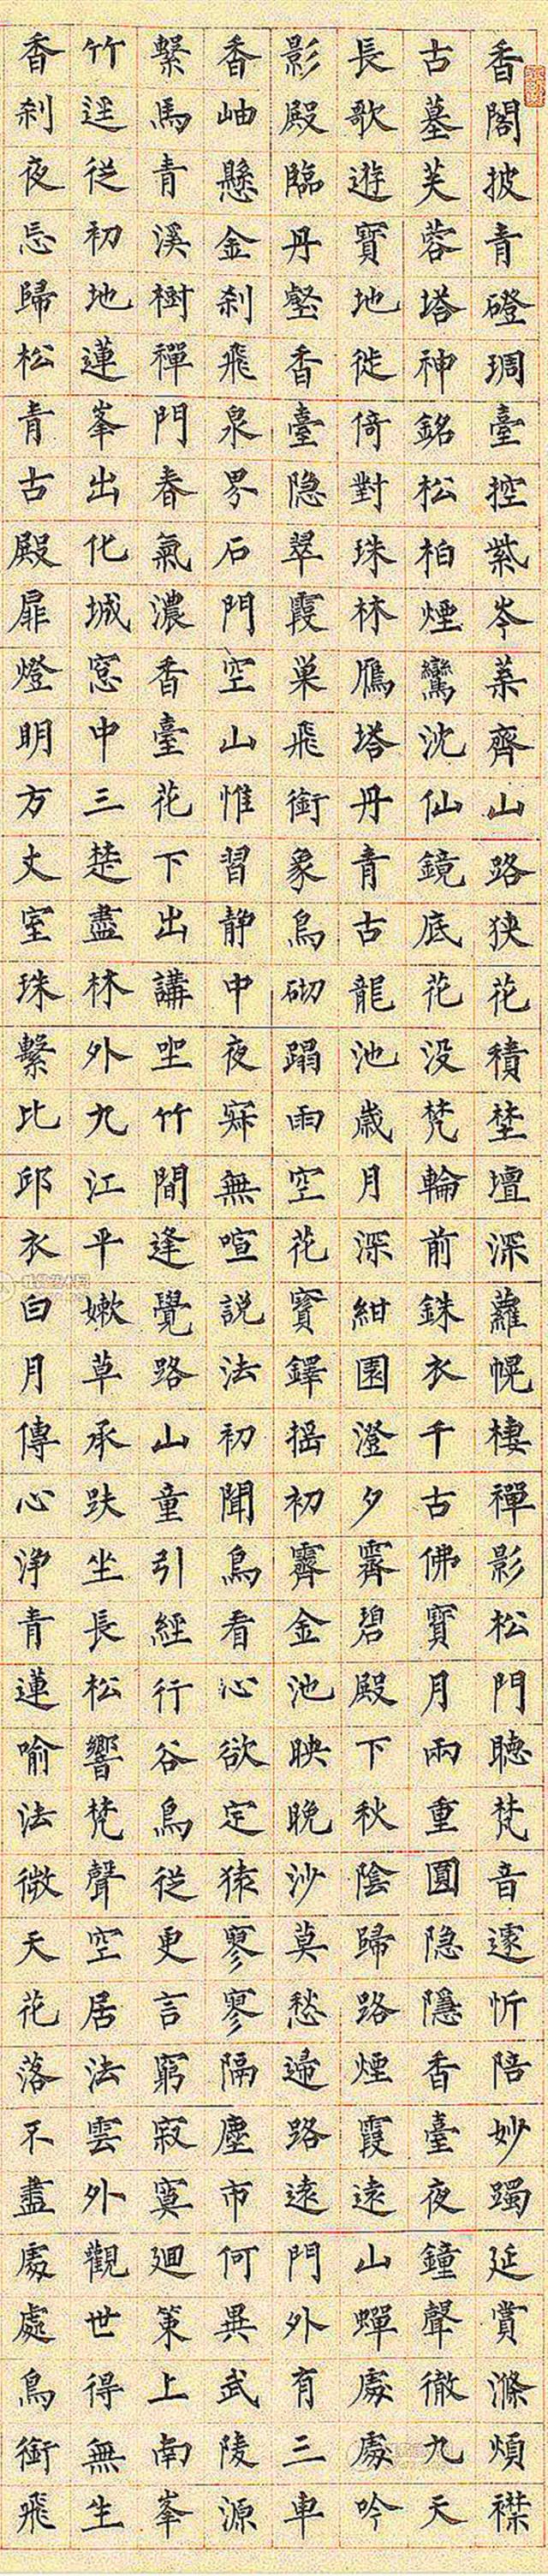 香閣披青磴琱臺控紫岑葉齊山路狹花積埜壇深蘿幌棲禪影松門聽梵音遽忻陪妙躅延賞滌煩襟
古墓芙蓉塔神銘松柏煙鸞沈仙鏡底花没梵輪前銖衣千古佛寶月兩重圓隐隱香臺夜鐘聲徹九天
長歌遊寶地徙倚對珠林鴈塔丹青古龍池歲月深紺園澄夕霽碧殿下秋陰歸路煙霞遠山蟬處處吟
影殿臨丹壑香臺隐翠霞巢飛銜象鳥砌蹋雨空花寳鐸揺初霽金池映晚沙莫愁歸路遠門外有三車
香岫懸金刹飛泉界石門空山惟習静中夜寂無喧說法初聞鳥看心欲定猿寥寥隔塵市何異武陵源
繫馬青溪樹禪門春氣濃香臺花下出講坐竹間逢覺路山童引經行谷鳥從更言窮寂寞廻策上南峯
竹逕從初地蓮峯出化城窓中三楚盡林外九江平嫩草承趺坐長松響梵聲空居法雲外觀世得無生
香刹夜忘歸松青古殿扉燈明方丈室珠繫比邱衣白月傳心浄青蓮喻法微天花落不盡處處鳥銜飛